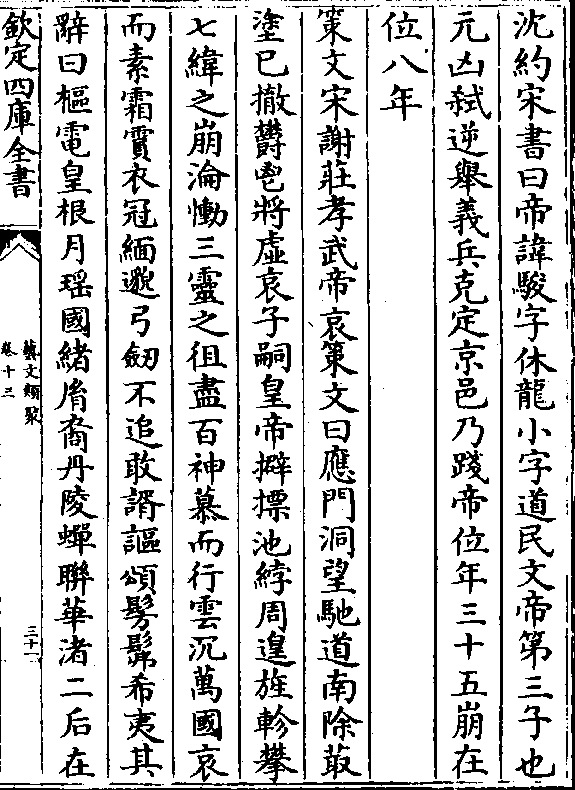 沈約宋書曰帝諱駿字休龍小字道民文帝第三子也
元凶弑逆舉義兵克定京邑乃踐帝位年三十五崩在
位八年
策文宋謝莊孝武帝哀策文曰應門洞望馳道南除菆
塗已撤鬱鬯將虛哀子嗣皇帝擗摽池綍周遑旌軫攀
七緯之崩淪慟三靈之徂盡百神慕而行雲沉萬國哀
而素霜霣衣冠緬邈弓劒不追敢謂謳頌髣髴希夷其
辭曰樞電皇根月瑶國緒脣裔丹陵蟬聯華渚二后在
欽定四庫全書
藝文類聚
卷十三
三十一